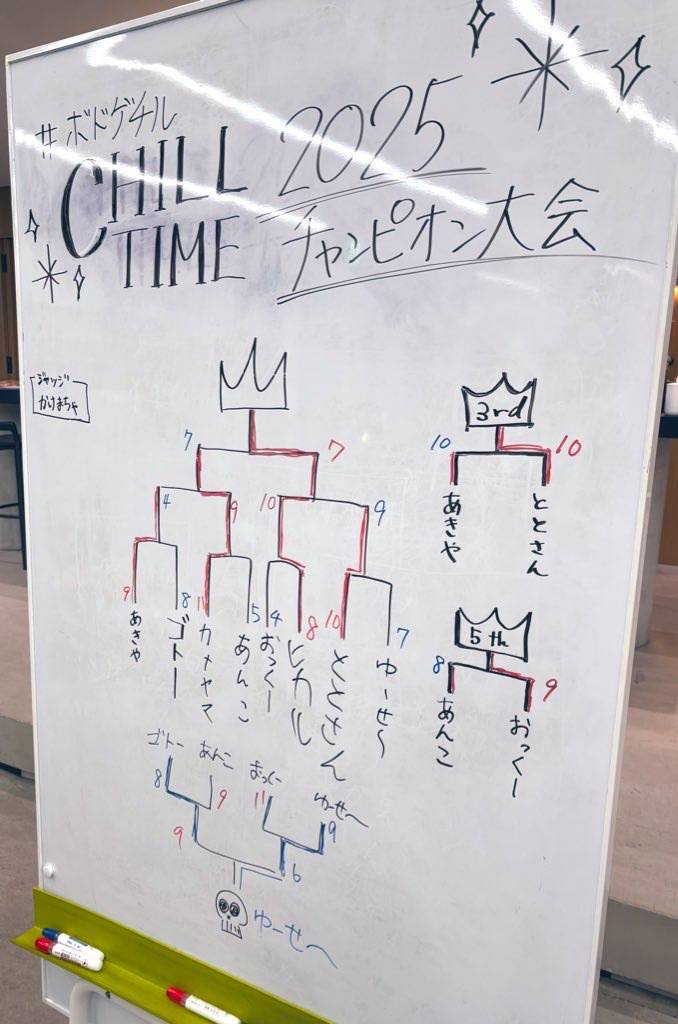 #ボドゲチル
CHILL
TIME
2025
チャンピオン大会
ジャッジ
かけまちゃ
7
7
4
9
10
9
9
8
11
5
4
8
10
7
あきや
ゴトー
カメヤマ
あんこ
おっくー
ヒカル
ととさん
ゆーせ〜
3rd
10
10
あきや
ととさん
5th
8
9
あんこ
おっくー
ゴトー
あんこ
おっくー
ゆーせ〜
8
9
11
9
9
6
ゆーせ〜